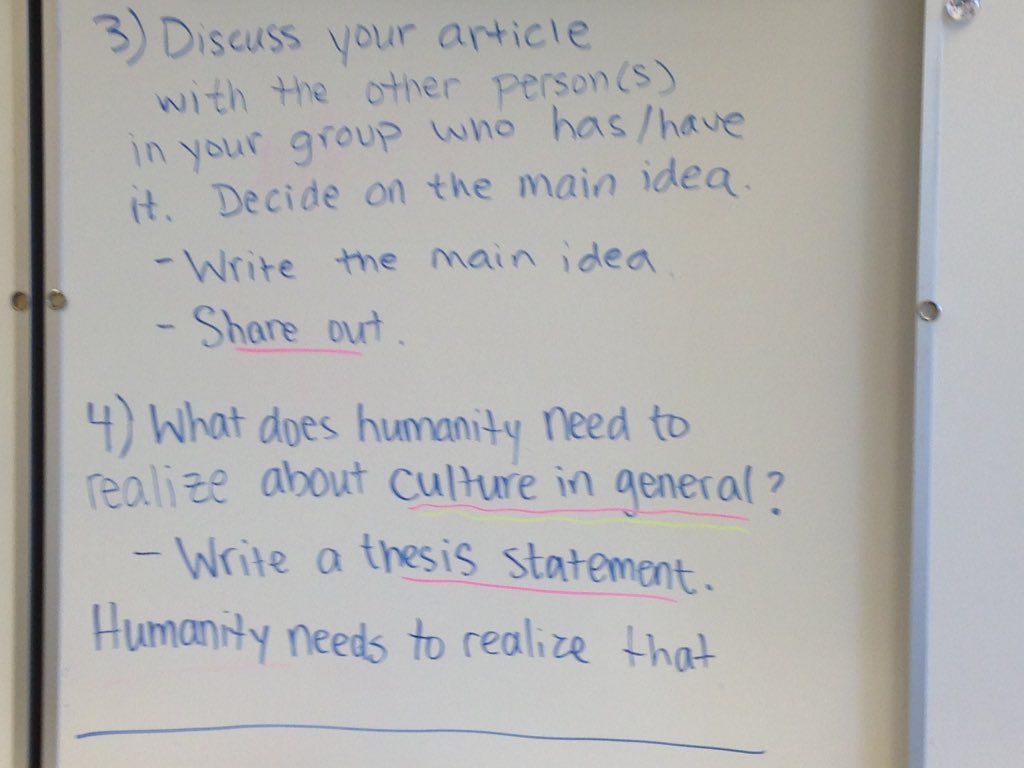 3) Discuss your article
with the other person(s)
in your group who has/have
it. Decide on the main idea.
- Write the main idea.
- Share out.
4) What does humanity need to
realize about culture in general?
- Write a thesis statement.
Humanity needs to realize that